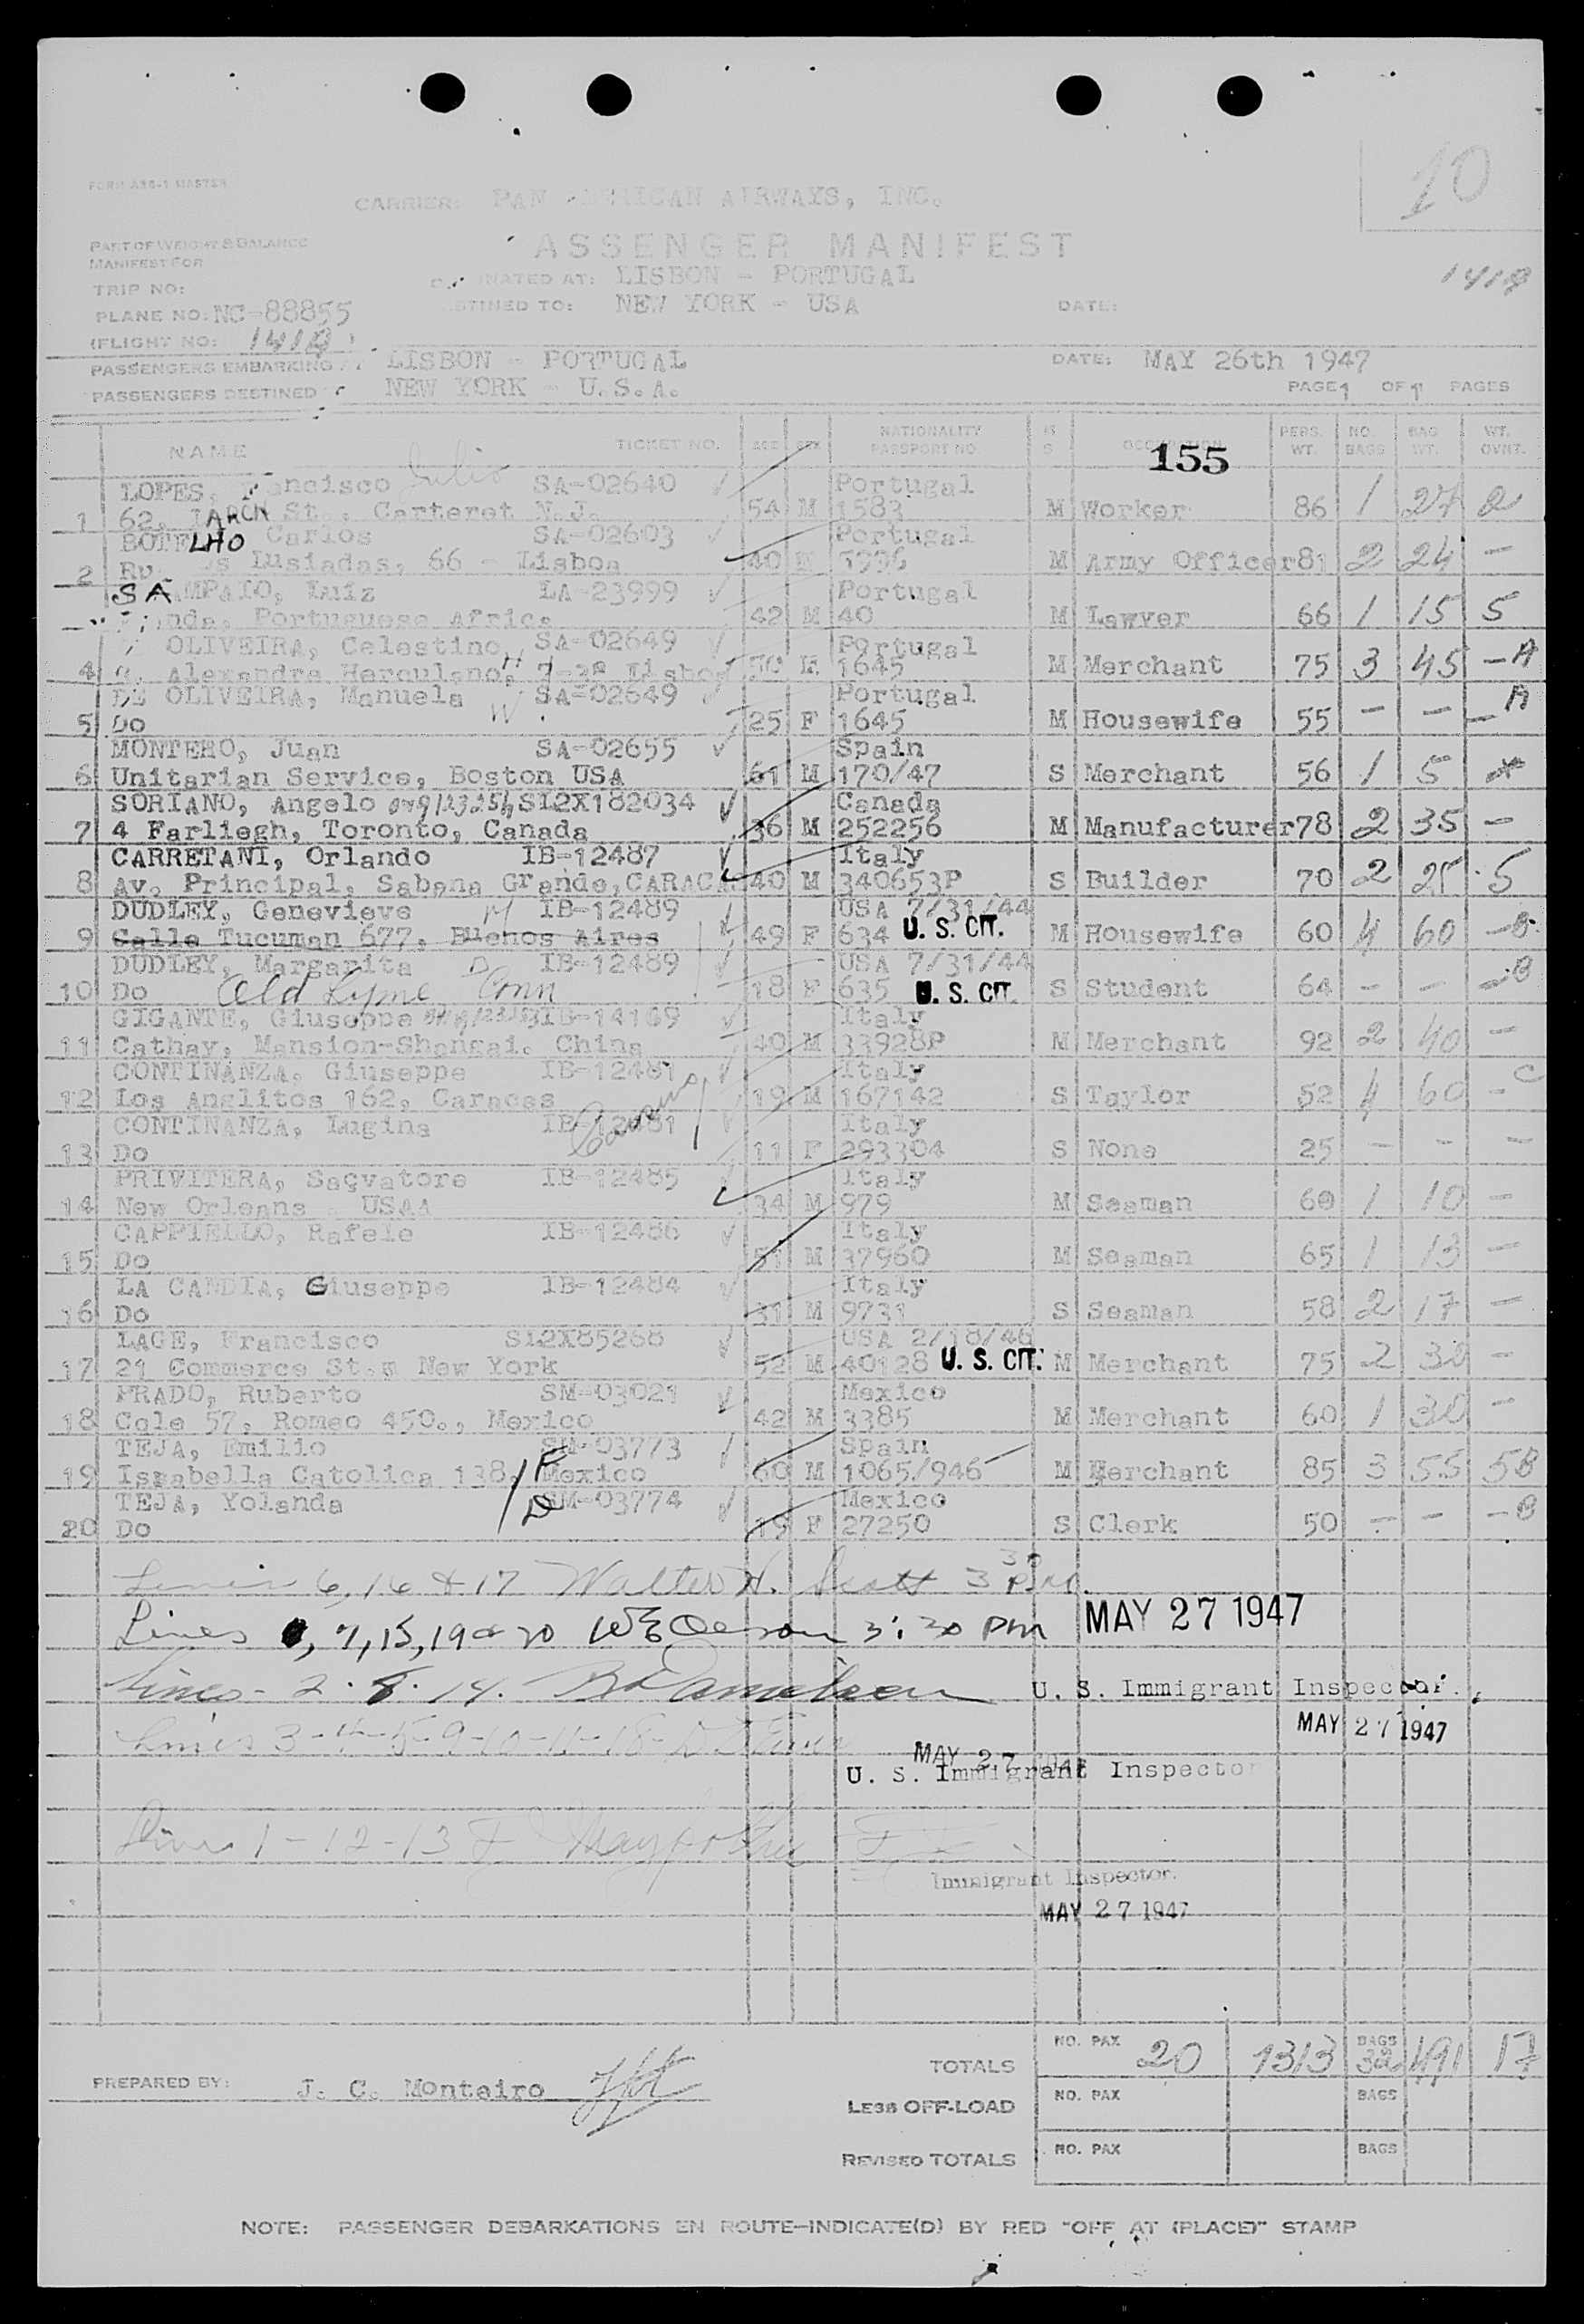 10
FORM ABS-1 MASTER
CARRIER: PAN AMERICAN AIRWAYS, INC.
PART OF WEIGHT & BALANCE
MANIFEST FOR
ASSENGER MANIFEST
TRIP NO:
INATED AT: LISBON - PORTUGAL
1418
PLANE NO: NC-88855
STINED TO: NEW YORK - USA
DATE:
(FLIGHT NO: 1418
PASSENGERS EMBARKING LISBON - PORTUGAL DATE: MAY 26th 1947
PASSENGERS DESTINED NEW YORK - U.S.A. PAGE 1 OF 1 PAGES
NAME TICKET NO. AGE SEX NATIONALITY PASSPORT NO M S OCCUPATION PERS. WT. NO. BAGS BAG WT. WT. OVNT.
155
LOPES, Francisco Julio SA-02640 Portugal
1 62, LARCH St., Carteret N.J. 54 M 1583 M Worker 86 1 27 2
BOTELHO Carlos SA-02603 Portugal
2 Lusiadas, 66 - Lisboa 40 M Army Officer 81 2 24 -
SAMPAIO, Luiz LA-23999 Portugal
nda, Portuguese Africa 42 M 40 M Lawyer 66 1 15 5
OLIVEIRA, Celestino, H SA-02649 Portugal
4 Alexandre Herculano, 7-3º Lisboa 1645 M Merchant 75 3 45 - A
DE OLIVEIRA, Manuela W SA-02649 Portugal
5 Do 25 F 1645 M Housewife 55 - - - A
MONTERO, Juan SA-02655 Spain
6 Unitarian Service, Boston USA 61 M 170/47 S Merchant 56 1 5
SORIANO, Angelo SI2X182034 Canada
7 4 Farliegh, Toronto, Canada 36 M 252256 M Manufacturer 78 2 35 -
CARRETANI, Orlando IB-12487 Italy
8 Av. Principal, Sabana Grande, CARACA 40 M 340653P S Builder 70 2 25 5
DUDLEY, Genevieve M IB-12489 USA 7/31/44
9 Calle Tucuman 677, Buenos Aires 49 F 634 U. S. CIT. M Housewife 60 4 60 - B
DUDLEY, Margarita D IB-12489 USA 7/31/44
10 Do Old Lyme, Conn 18 F 635 U. S. CIT. S Student 64 - - - B
GIGANTE, Giuseppe IB-14169 Italy
11 Cathay, Mansion-Shangai. China 40 M 33928P M Merchant 92 2 40 -
CONTINANZA, Giuseppe IB-12481 Italy
12 Los Anglitos 162, Caracas 19 M 167142 S Taylor 52 4 60 - C
CONTINANZA, Lugina IB-12481 Italy
13 Do 11 F 293304 S None 25 - - -
PRIVITERA, Saçvatore IB-12485 Italy
14 New Orleans USAA 34 M 979 M Seaman 60 1 10 -
CAPPIELLO, Rafele IB-12486 Italy
15 Do 51 M 37960 M Seaman 65 1 13 -
LA CANDIA, Giuseppe IB-12484 Italy
16 Do 31 M 9731 S Seaman 58 2 17 -
LAGE, Francisco SI2X85268 USA 2/18/46
17 21 Commerce St. New York 52 M 40128 U. S. CIT. M Merchant 75 2 30 -
PRADO, Ruberto SM-03021 Mexico
18 Cale 57, Romeo 450., Mexico 42 M 3385 M Merchant 60 1 30 -
TEJA, Emilio SM-03773 Spain
19 Isabella Catolica 138, Mexico F 60 M 1065/946 M Merchant 85 3 55 5B
TEJA, Yolanda D SM-03774 Mexico
20 Do 19 F 27250 S Clerk 50 - - - B
Lines 6, 16 & 17 Walter H. Scott 3 30 P.M.
Lines 7, 15, 19 & 20 3:30 PM MAY 27 1947
Lines - 2. 8. 14. U. S. Immigrant Inspector.
MAY 27 1947
Lines 3-4-5-9-10-11-18-
MAY 27
U. S. Immigrant Inspector
Lines 1-12-13
Immigrant Inspector.
MAY 27 1947
TOTALS NO. PAX 20 1313 BAGS 32 491 17
PREPARED BY: J. C. Monteiro
LESS OFF-LOAD NO. PAX BAGS
REVISED TOTALS NO. PAX BAGS
NOTE: PASSENGER DEBARKATIONS EN ROUTE-INDICATE(D) BY RED "OFF AT (PLACE)" STAMP